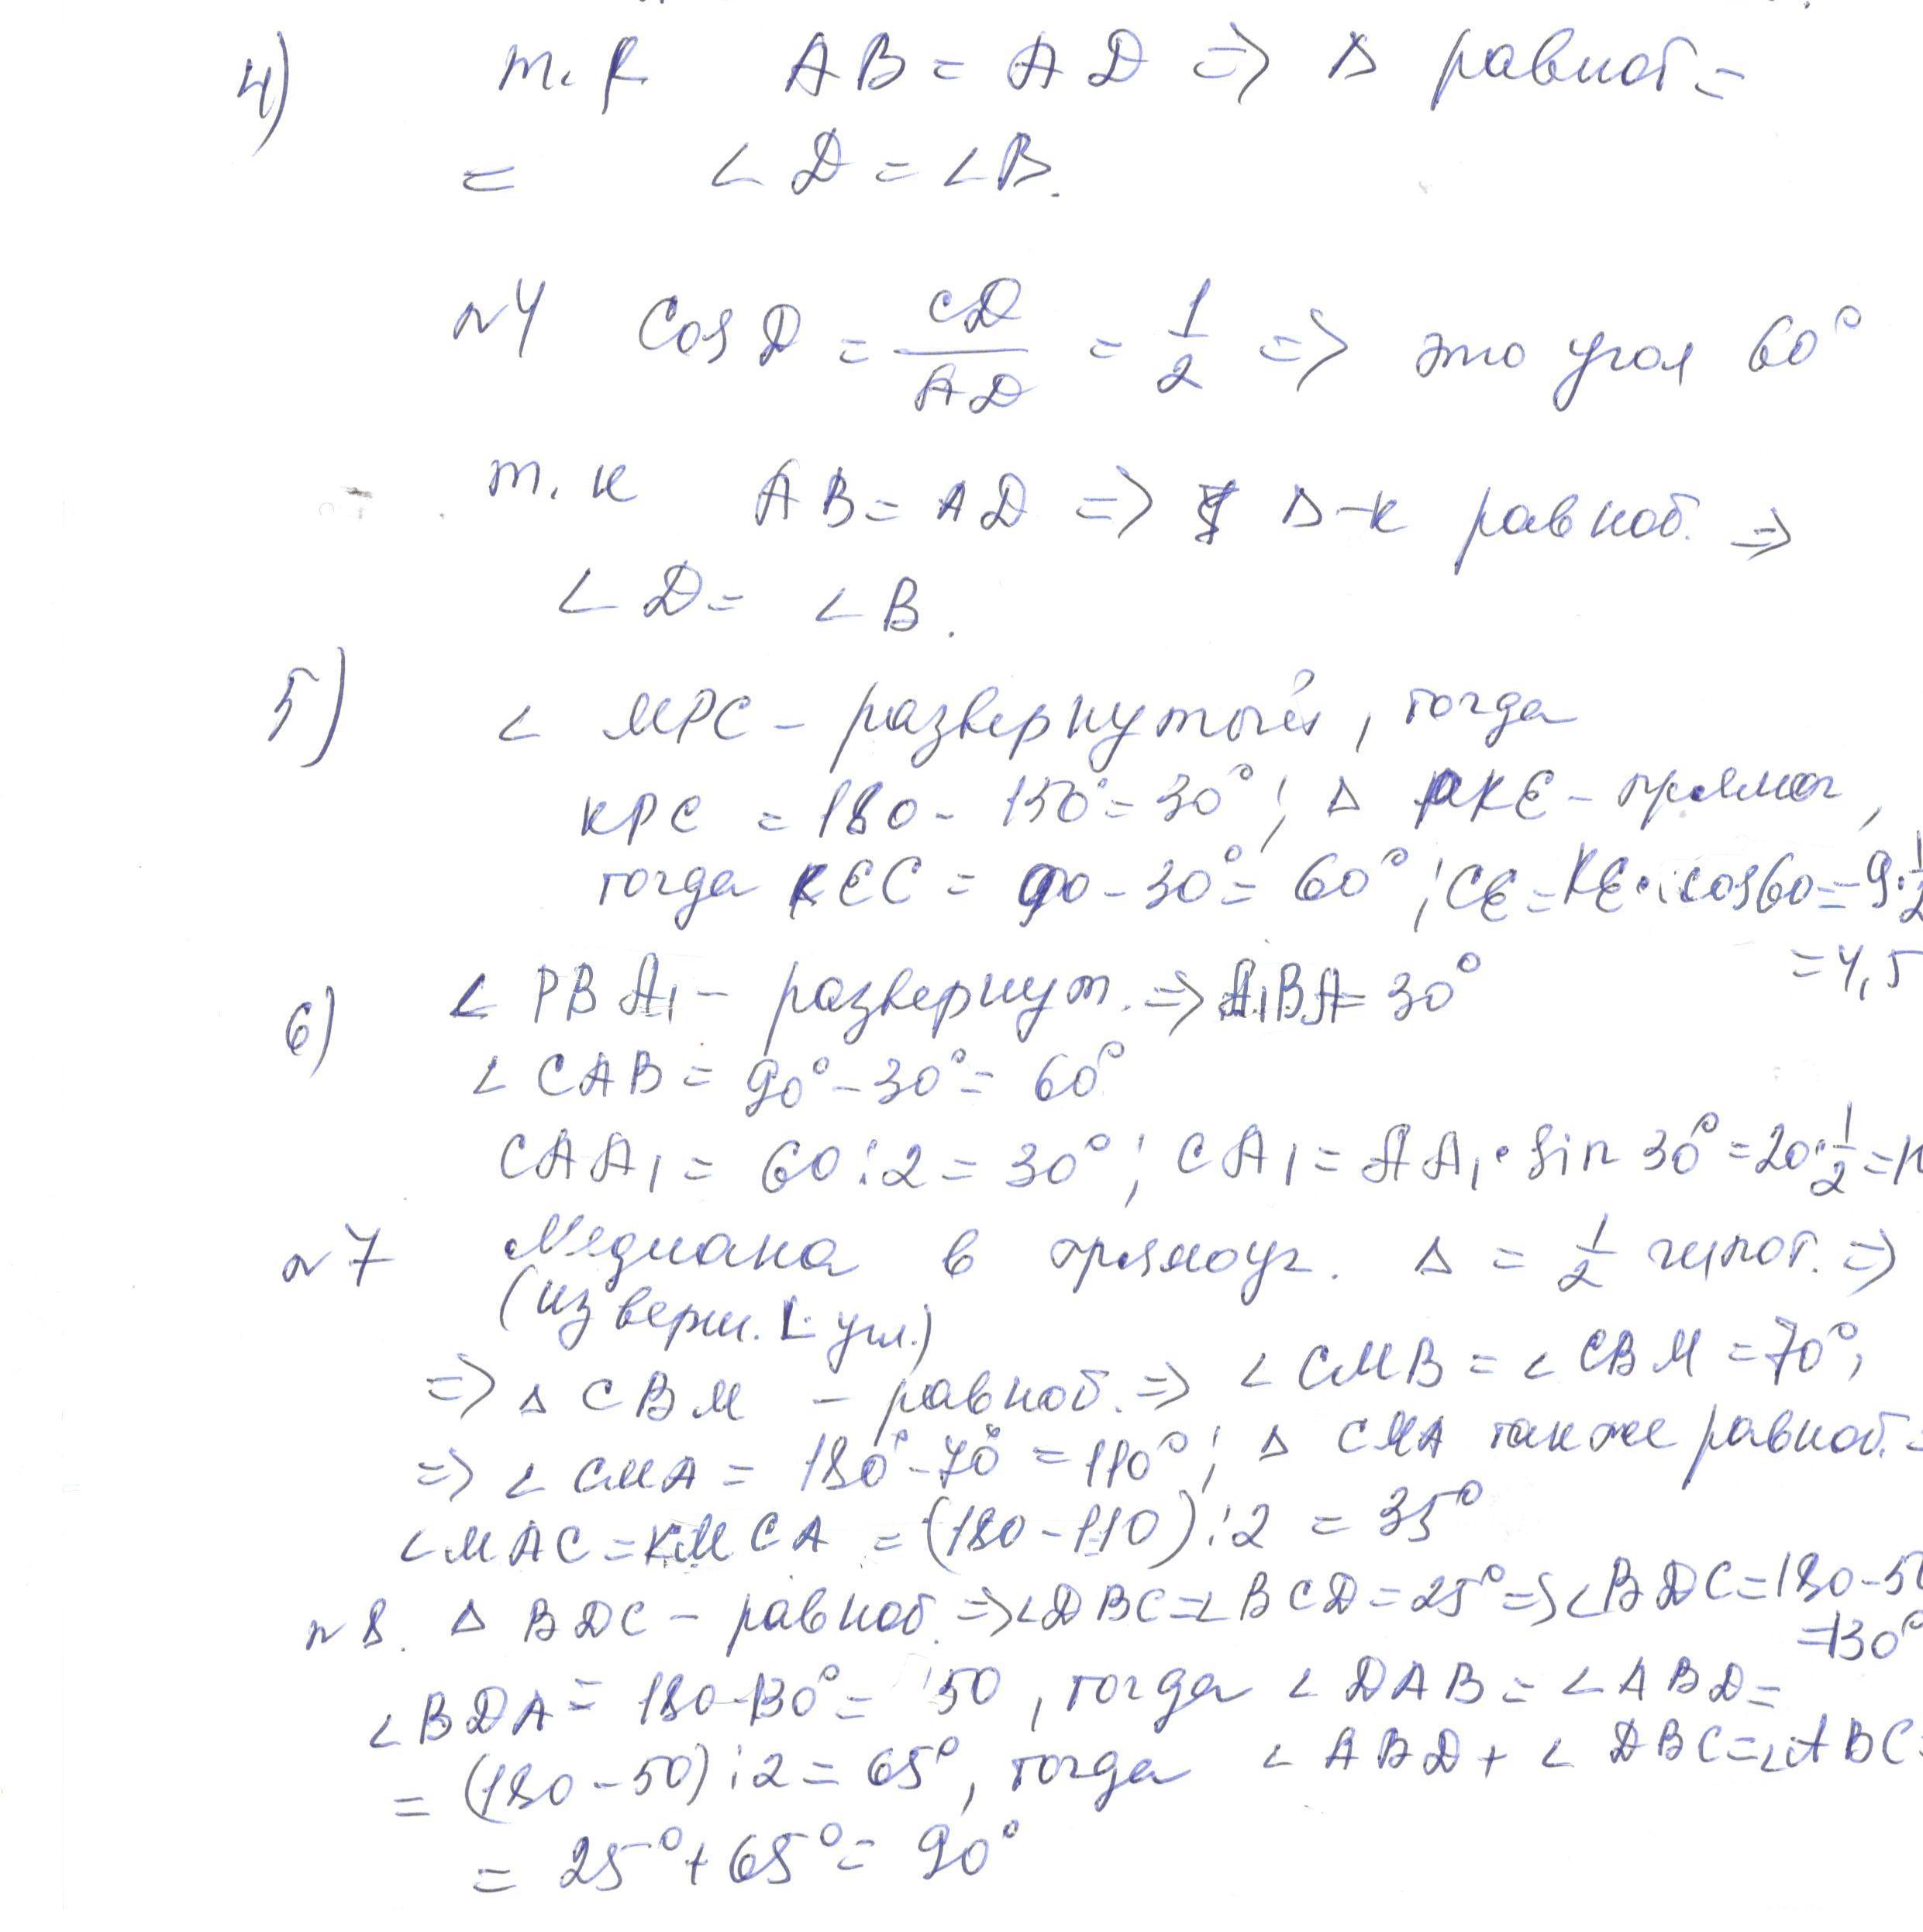 4) т.к AB = AD => Δ равноб =
= ∠D = ∠B.
№4 Cos D = CD/AD = 1/2 => это угол 60°
т.к AB = AD => Δ-к равноб. =>
∠D = ∠B.
5) ∠ MPC - развернутый, тогда
KPC = 180 - 150° = 30°; Δ PKE - прямоуг,
тогда KEC = 90 - 30° = 60°; CE = KE · cos60 = 9·1/2
= 4,5
6) ∠ PBA₁ - развернут. => A₁BA = 30°
∠ CAB = 90° - 30° = 60°
CAA₁ = 60 : 2 = 30°; CA₁ = AA₁ · sin 30° = 20·1/2 = 1
№7 Медиана в прямоуг. Δ = 1/2 гипот. =>
(из верш. L угл.)
=> Δ CBM - равноб. => ∠ CMB = ∠ CBM = 70°;
=> ∠ CMA = 180° - 70° = 110°; Δ CMA также равноб. =
∠MAC = ∠MCA = (180 - 110) : 2 = 35°
№8. Δ BDC - равноб. => ∠DBC = ∠BCD = 25° => ∠BDC = 180 - 50
= 130°
∠BDA = 180 - 130° = 50, тогда ∠DAB = ∠ABD =
= (180 - 50) : 2 = 65°, тогда ∠ABD + ∠DBC = ∠ABC =
= 25° + 65° = 90°